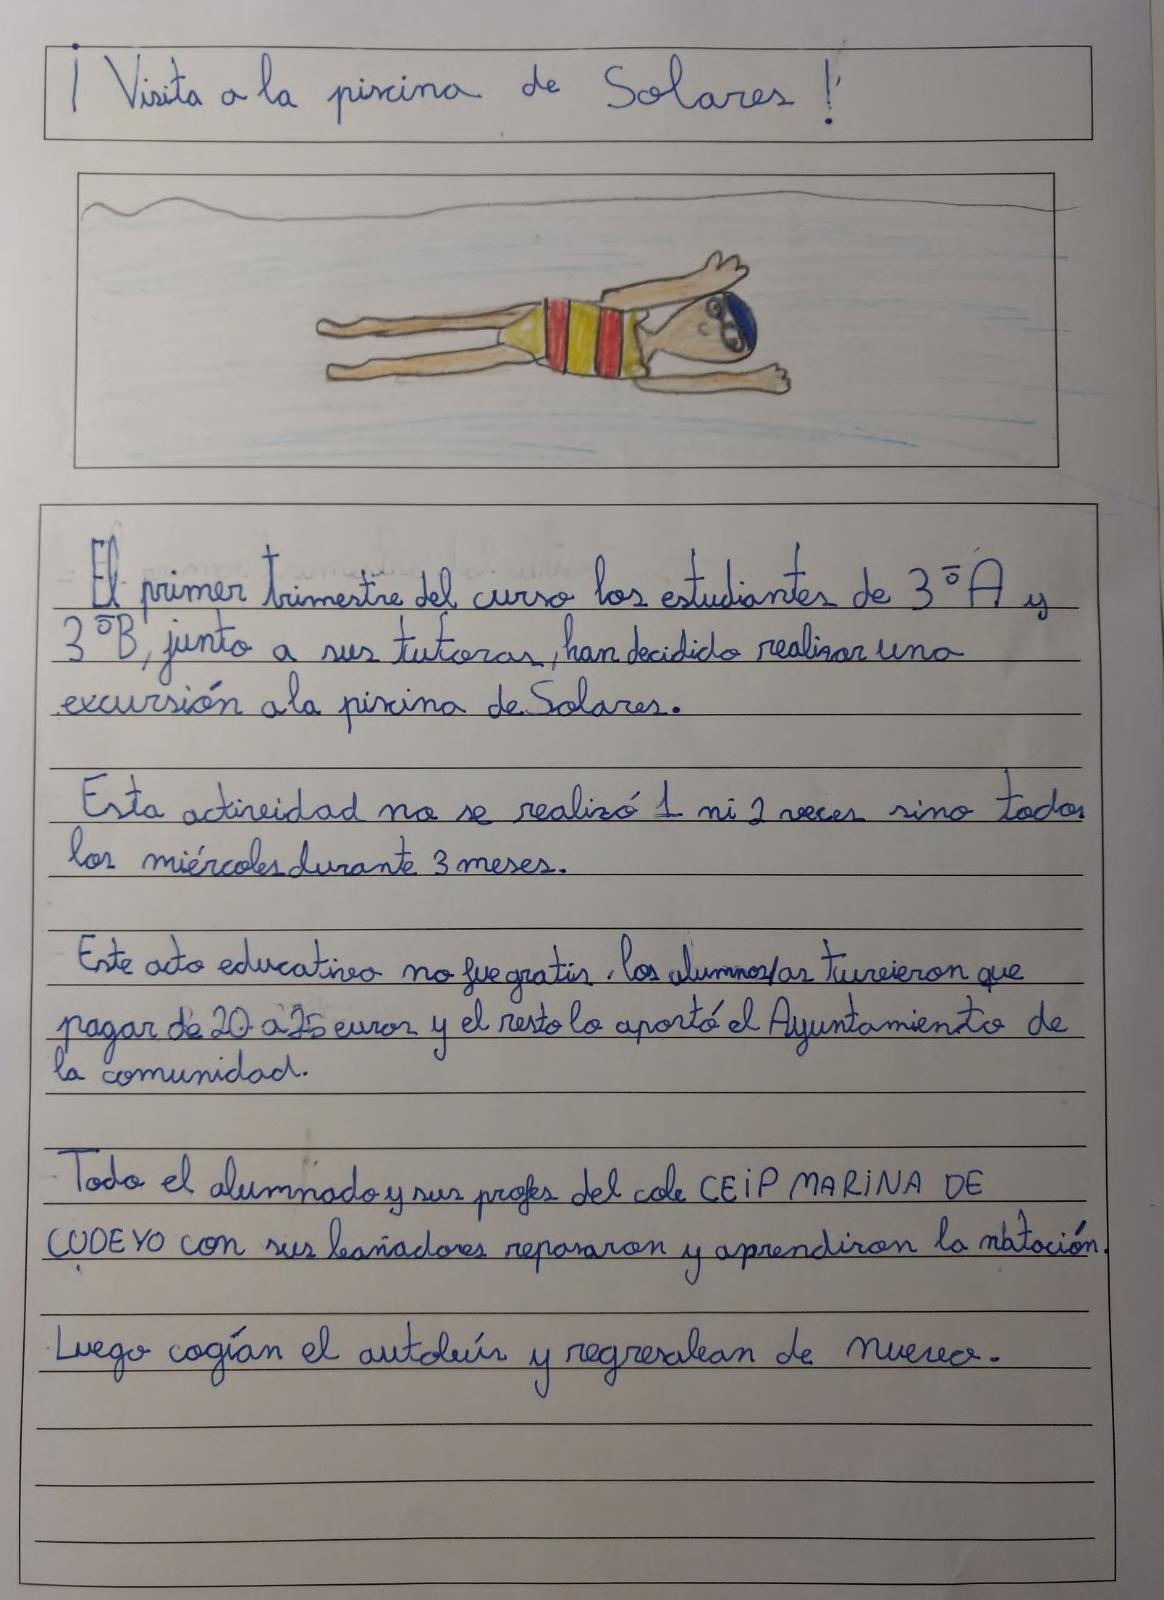 ¡Visita a la piscina de Solares!
El primer trimestre del curso los estudiantes de 3ºA y
3ºB, junto a sus tutoras, han decidido realizar una
excursión a la piscina de Solares.
Esta actividad no se realizó 1 ni 2 veces sino todos
los miércoles durante 3 meses.
Este acto educativo no fue gratis, los alumnos/as tuvieron que
pagar de 20 a 25 euros y el resto lo aportó el Ayuntamiento de
la comunidad.
Todo el alumnado y sus profes del cole CEiP MARiNA DE
CUDEYO con sus bañadores repasaron y aprendiron la natación.
Luego cogían el autobús y regresaban de nuevo.